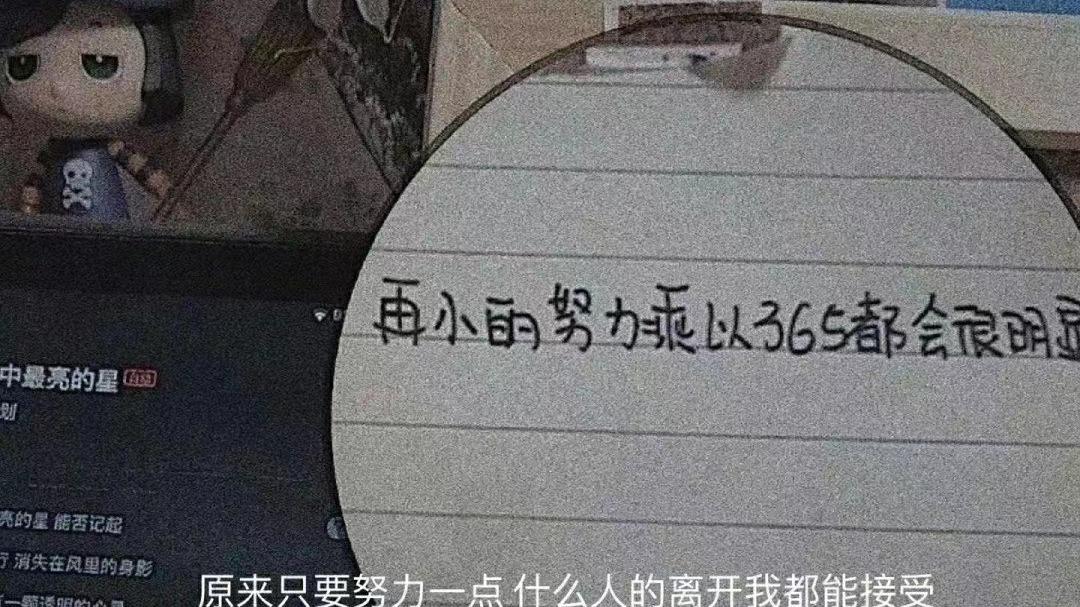 再小的努力乘以365都会很明显
中最亮的星
划
亮的星 能否记起
行 消失在风里的身影
一颗透明的心灵
原来只要努力一点 什么人的离开我都能接受